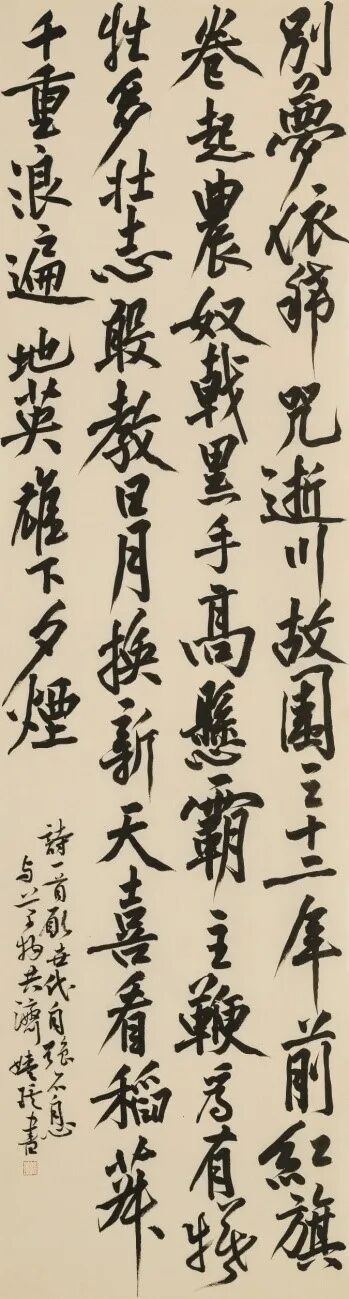 別夢依稀咒逝川故園三十二年前紅旗
卷起農奴戟黑手高懸霸主鞭為有犧
牲多壮志敢教日月換新天喜看稻菽
千重浪遍地英雄下夕煙
詩一首願世代自強不息
与物共濟書